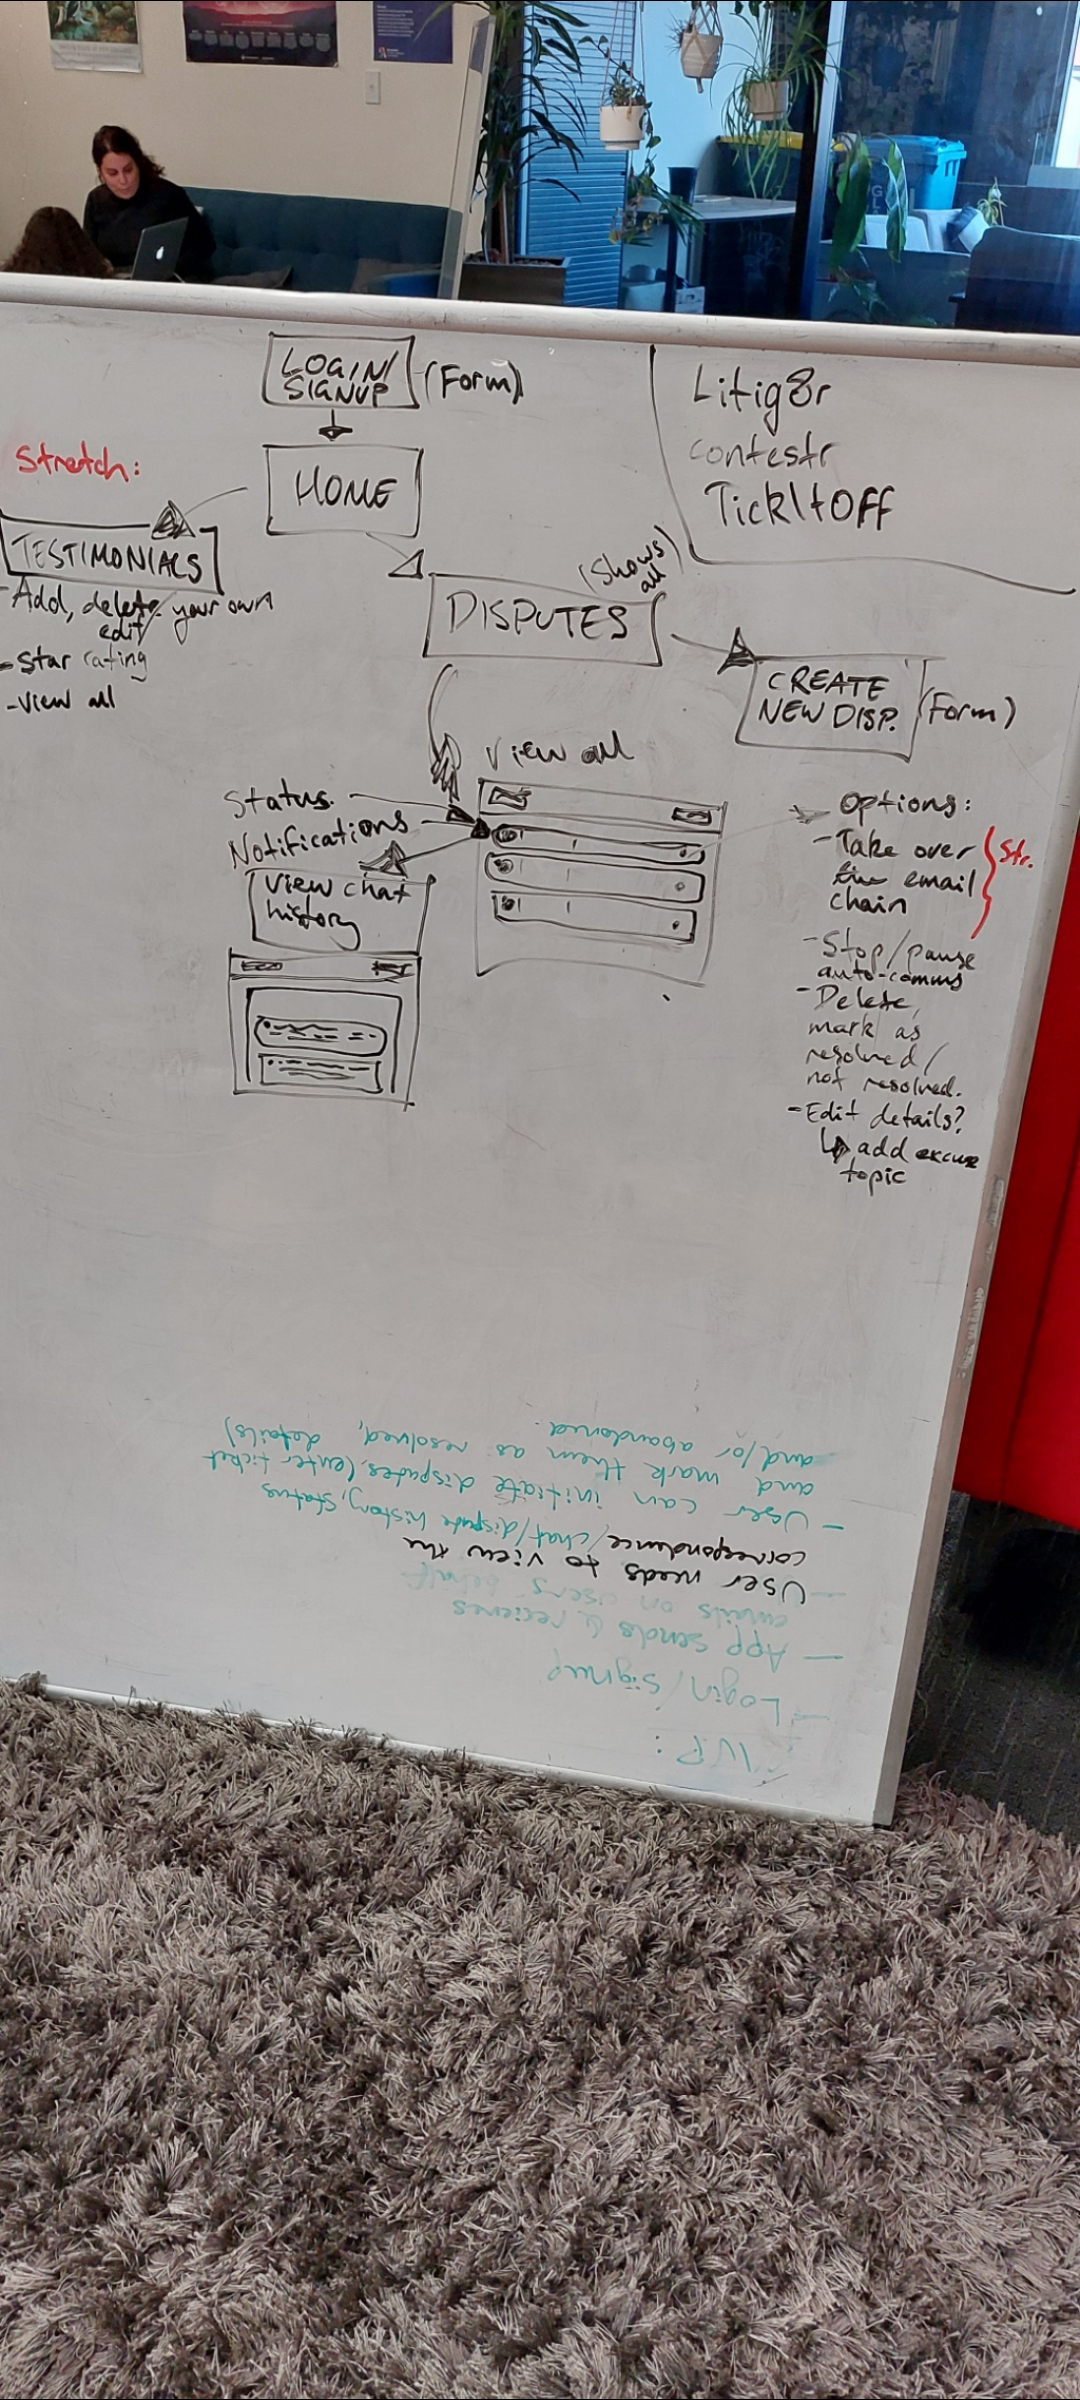 LOGIN/
SIGNUP
(Form)
HOME
Litig8r
contestr
TickItOff
Stretch:
TESTIMONIALS
- Add, delete, your own
edit/
- Star rating
- View all
(Shows
all
DISPUTES
CREATE
NEW DISP.
(Form)
View all
Status
Notifications
View chat
history
Options:
- Take over
email
chain
Str.
- Stop/pause
auto-comms
- Delete,
mark as
resolved/
not resolved.
- Edit details?
↳ add excuse
topic
MVP:
- Login/Signup
- App sends & recieves
emails on users behalf
- User needs to view the
correspondance/chat/dispute history, status
- User can initiate disputes (enter ticket
and mark them as resolved, details)
and/or abandoned.